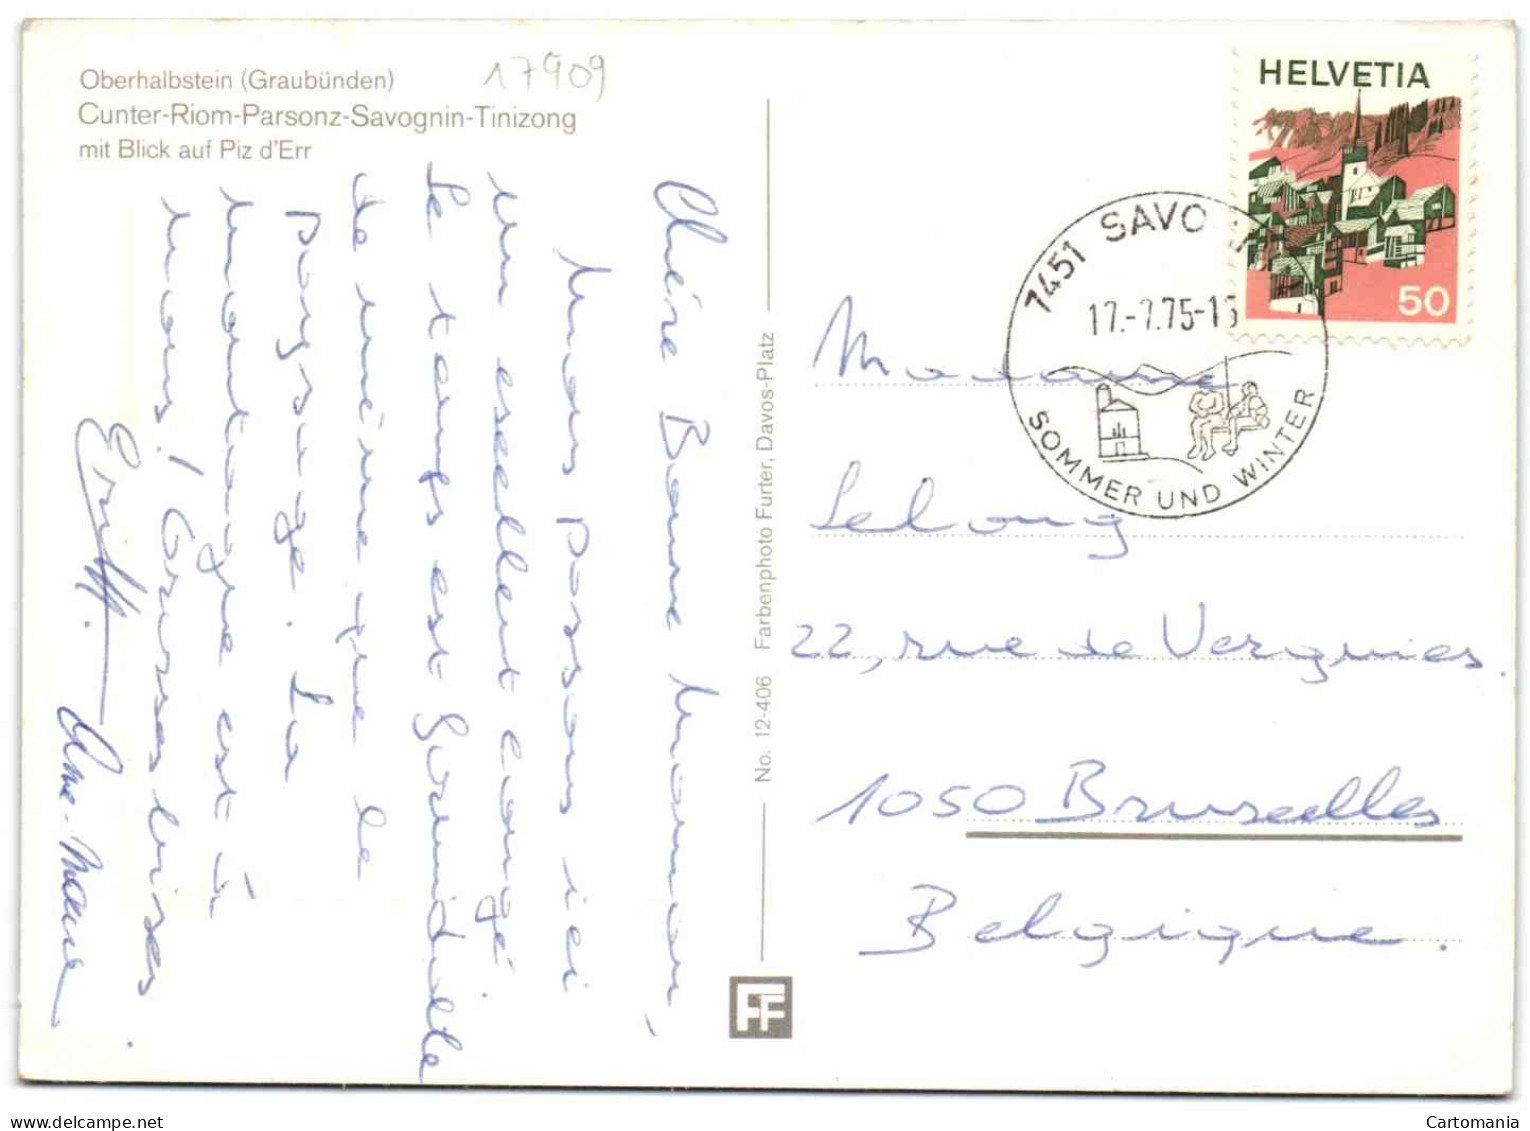 Oberhalbstein (Graubünden)
Cunter-Riom-Parsonz-Savognin-Tinizong
mit Blick auf Piz d'Err
17909
Chère Bonne Maman,
Nous passons ici
un excellent congé.
Le temps est formidable
de même que le
paysage. La
montagne est à
nous! Grosses bises
Ariane-Marie
No. 12-406 Farbenphoto Furter, Davos-Platz
FF
HELVETIA
50
7451 SAVO
17.-7.75-1
SOMMER UND WINTER
Madame
Lelong
22, rue de Vergnies.
1050 Bruxelles
Belgique.
delcampe.net
Cartomania